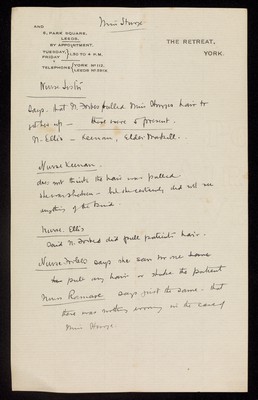 Miss Sturge
AND
5, PARK SQUARE,
LEEDS.
BY APPOINTMENT.
TUESDAY & FRIDAY } 1.30 TO 4 P.M.
TELEPHONE { YORK No 112. LEEDS No
THE RETREAT,
YORK.
Nurse Lister
Says that N. Forbes pulled Miss Sturges hair to
get her up — three more present.
N. Ellis — Keenan, Elder
Nurse Keenan.
does not think the hair was pulled
she was shaken — but she certainly did not see
anything of the kind.
Nurse. Ellis
Said N. Forbes did pull patients hair.
Nurse Forbes says she saw no one
pull any hair or shake the patient
Nurse says just the same. that
there was nothing wrong in the case of
Miss Sturge.